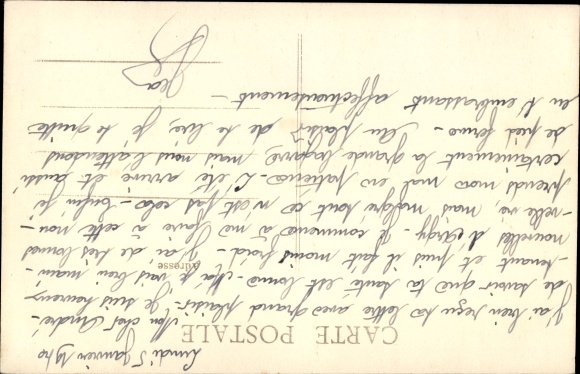 CARTE POSTALE
Adresse
Lundi 5 Janvier 19
Mon cher André.
J'ai bien reçu ta lettre avec grand plaisir. Je suis heureux
de savoir que ta santé est bonne. Moi je vais bien, main-
-tenant et puis il fait moins froid. J'ai de très bonnes
nouvelles d' je commence à me faire à cette nou-
-velle vie, mais, malgré tout ce n'est pas cela. Enfin je
prends mon mal en patience. L'été arrive et aussi
certainement la grande bagarre, mais nous l'attendons
de pied ferme. Au plaisir de te lire, je te quitte
en t'embrassant affectueusement.
Jean